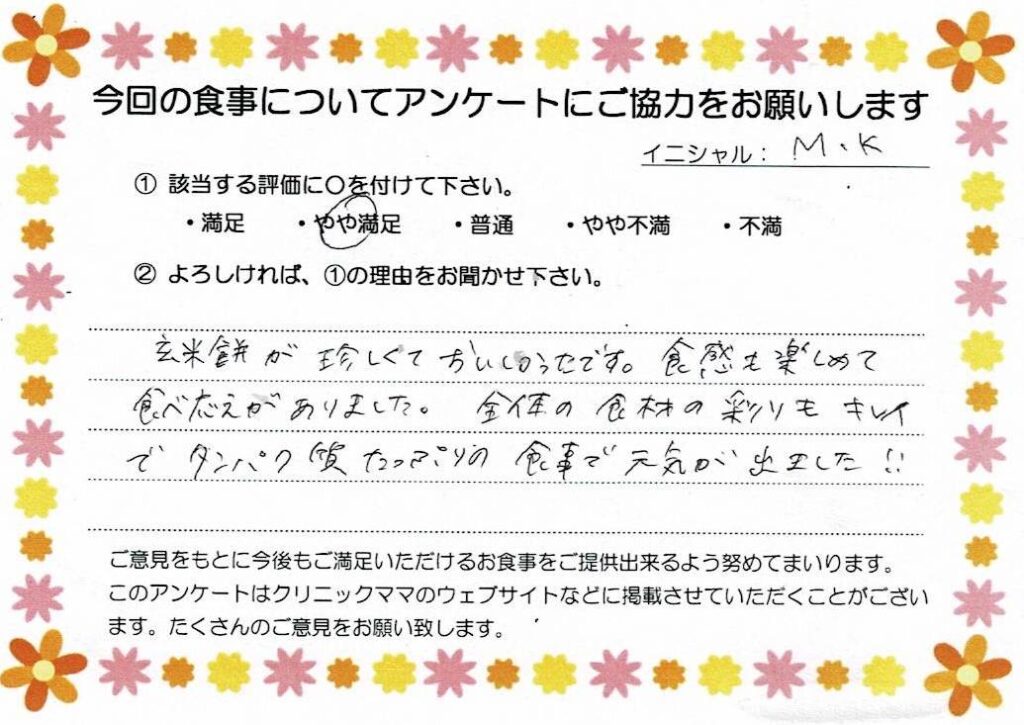 今回の食事についてアンケートにご協力をお願いします
イニシャル： M.K
① 該当する評価に〇を付けて下さい。
・満足 ・やや満足 ・普通 ・やや不満 ・不満
② よろしければ、①の理由をお聞かせ下さい。
玄米餅が珍しくておいしかったです。食感も楽しめて
食べ応えがありました。全体の食材の彩りもキレイ
でタンパク質たっぷりの食事で元気が出ました!!
ご意見をもとに今後もご満足いただけるお食事をご提供出来るよう努めてまいります。
このアンケートはクリニックママのウェブサイトなどに掲載させていただくことがござい
ます。たくさんのご意見をお願い致します。